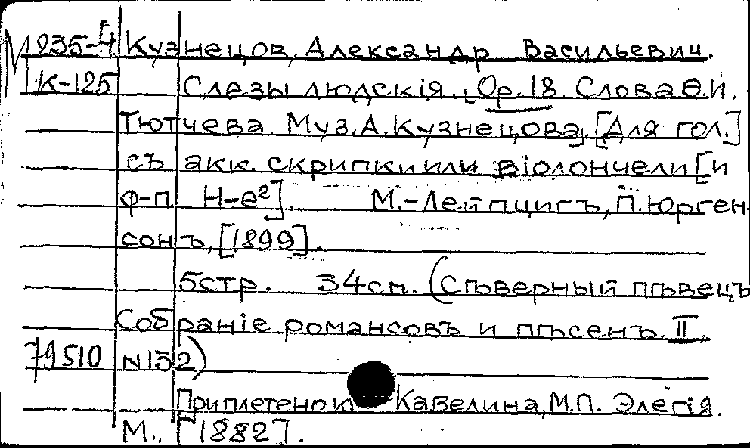 М 235-4 Кузнецов, Александр Васильевич.
К-125 Слезы людскія. Op.18. Слова Ѳ.И.
Тютчева. Муз. А. Кузнецова, [Для гол.]
съ акк. скрипки или віолончели [и
ф-п. H-e²]. М.-Лейпцигъ, П. Юрген
сонъ, [1899].
5стр. 34см. (Сѣверный пѣвецъ
Собраніе романсовъ и пѣсенъ. II.
79510 N152)
Приплетено к Кавелина, М.П. Элегія.
М., [1882].